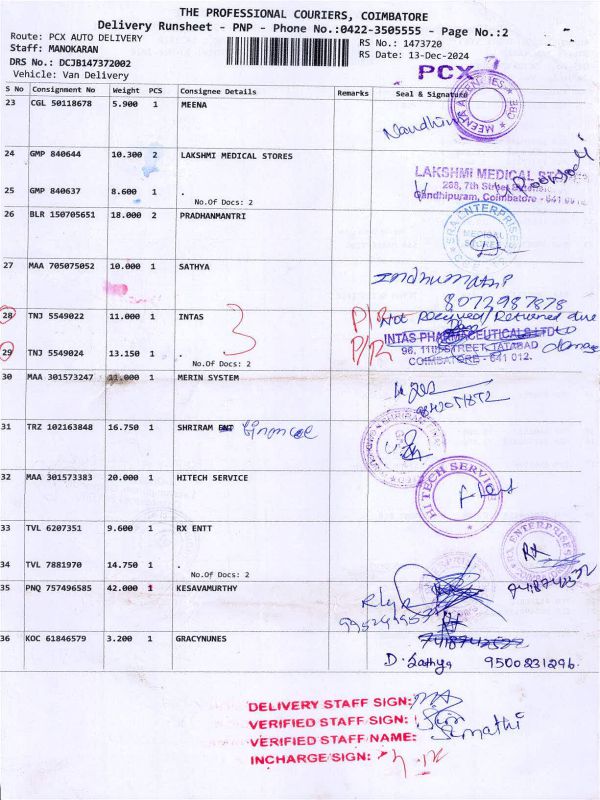 THE PROFESSIONAL COURIERS, COIMBATORE
Delivery Runsheet - PNP - Phone No.:0422-3505555 - Page No.:2
Route: PCX AUTO DELIVERY
RS No.: 1473720
Staff: MANOKARAN
RS Date: 13-Dec-2024
DRS No.: DCJB147372002
Vehicle: Van Delivery
PCX
S No Consignment No Weight PCS Consignee Details Remarks Seal & Signature
23 CGL 50118678 5.900 1 MEENA
Nandhini
24 GMP 840644 10.300 2 LAKSHMI MEDICAL STORES
LAKSHMI MEDICAL
25 GMP 840637 8.600 1 .
288, 7th Street
No.Of Docs: 2
Gandhipuram, Coimbatore - 641
26 BLR 150705651 18.000 2 PRADHANMANTRI
ENTERPRISES
MEDICAL
STORES
27 MAA 705075052 10.000 1 SATHYA
Indhumathi
8072987878
28 TNJ 5549022 11.000 1 INTAS
3
P/R
Not Received/Returned due to damage
INTAS PHARMACEUTICALS LTD
29 TNJ 5549024 13.150 1 .
P/R
96, 11th STREET, TATABAD
No.Of Docs: 2
COIMBATORE - 641 012.
30 MAA 301573247 11.000 1 MERIN SYSTEM
31 TRZ 102163848 16.750 1 SHRIRAM ENT financel
32 MAA 301573383 20.000 1 HITECH SERVICE
HI TECH SERVICE
33 TVL 6207351 9.600 1 RX ENTT
ENTERPRISES
RX
34 TVL 7881970 14.750 1 .
No.Of Docs: 2
35 PNQ 757496585 42.000 1 KESAVAMURTHY
36 KOC 61846579 3.200 1 GRACYNUNES
D. Sathya 9500231296.
DELIVERY STAFF SIGN:
VERIFIED STAFF SIGN:
VERIFIED STAFF NAME: Semathi
INCHARGE SIGN: